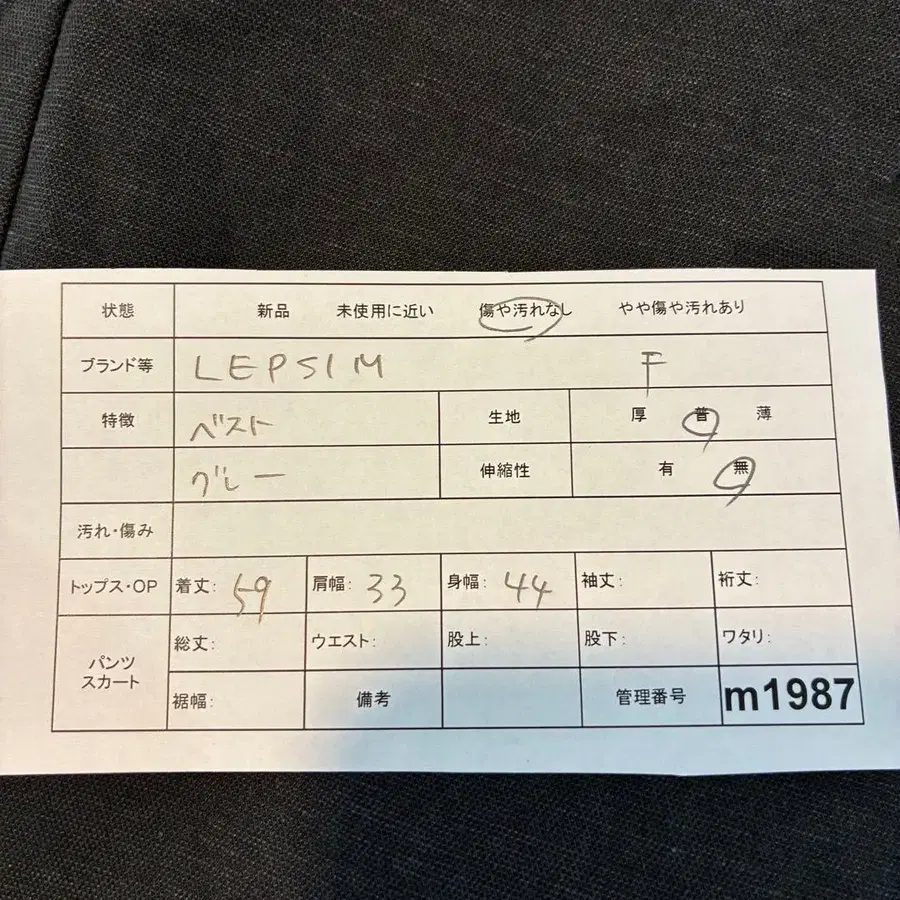 状態 新品 未使用に近い 傷や汚れなし やや傷や汚れあり
ブランド等 LEPSIM F
特徴 ベスト 生地 厚 普 薄
グレー 伸縮性 有 無
汚れ・傷み
トップス・OP 着丈: 59 肩幅: 33 身幅: 44 袖丈: 裄丈:
パンツ スカート 総丈: ウエスト: 股上: 股下: ワタリ:
裾幅: 備考 管理番号 m1987